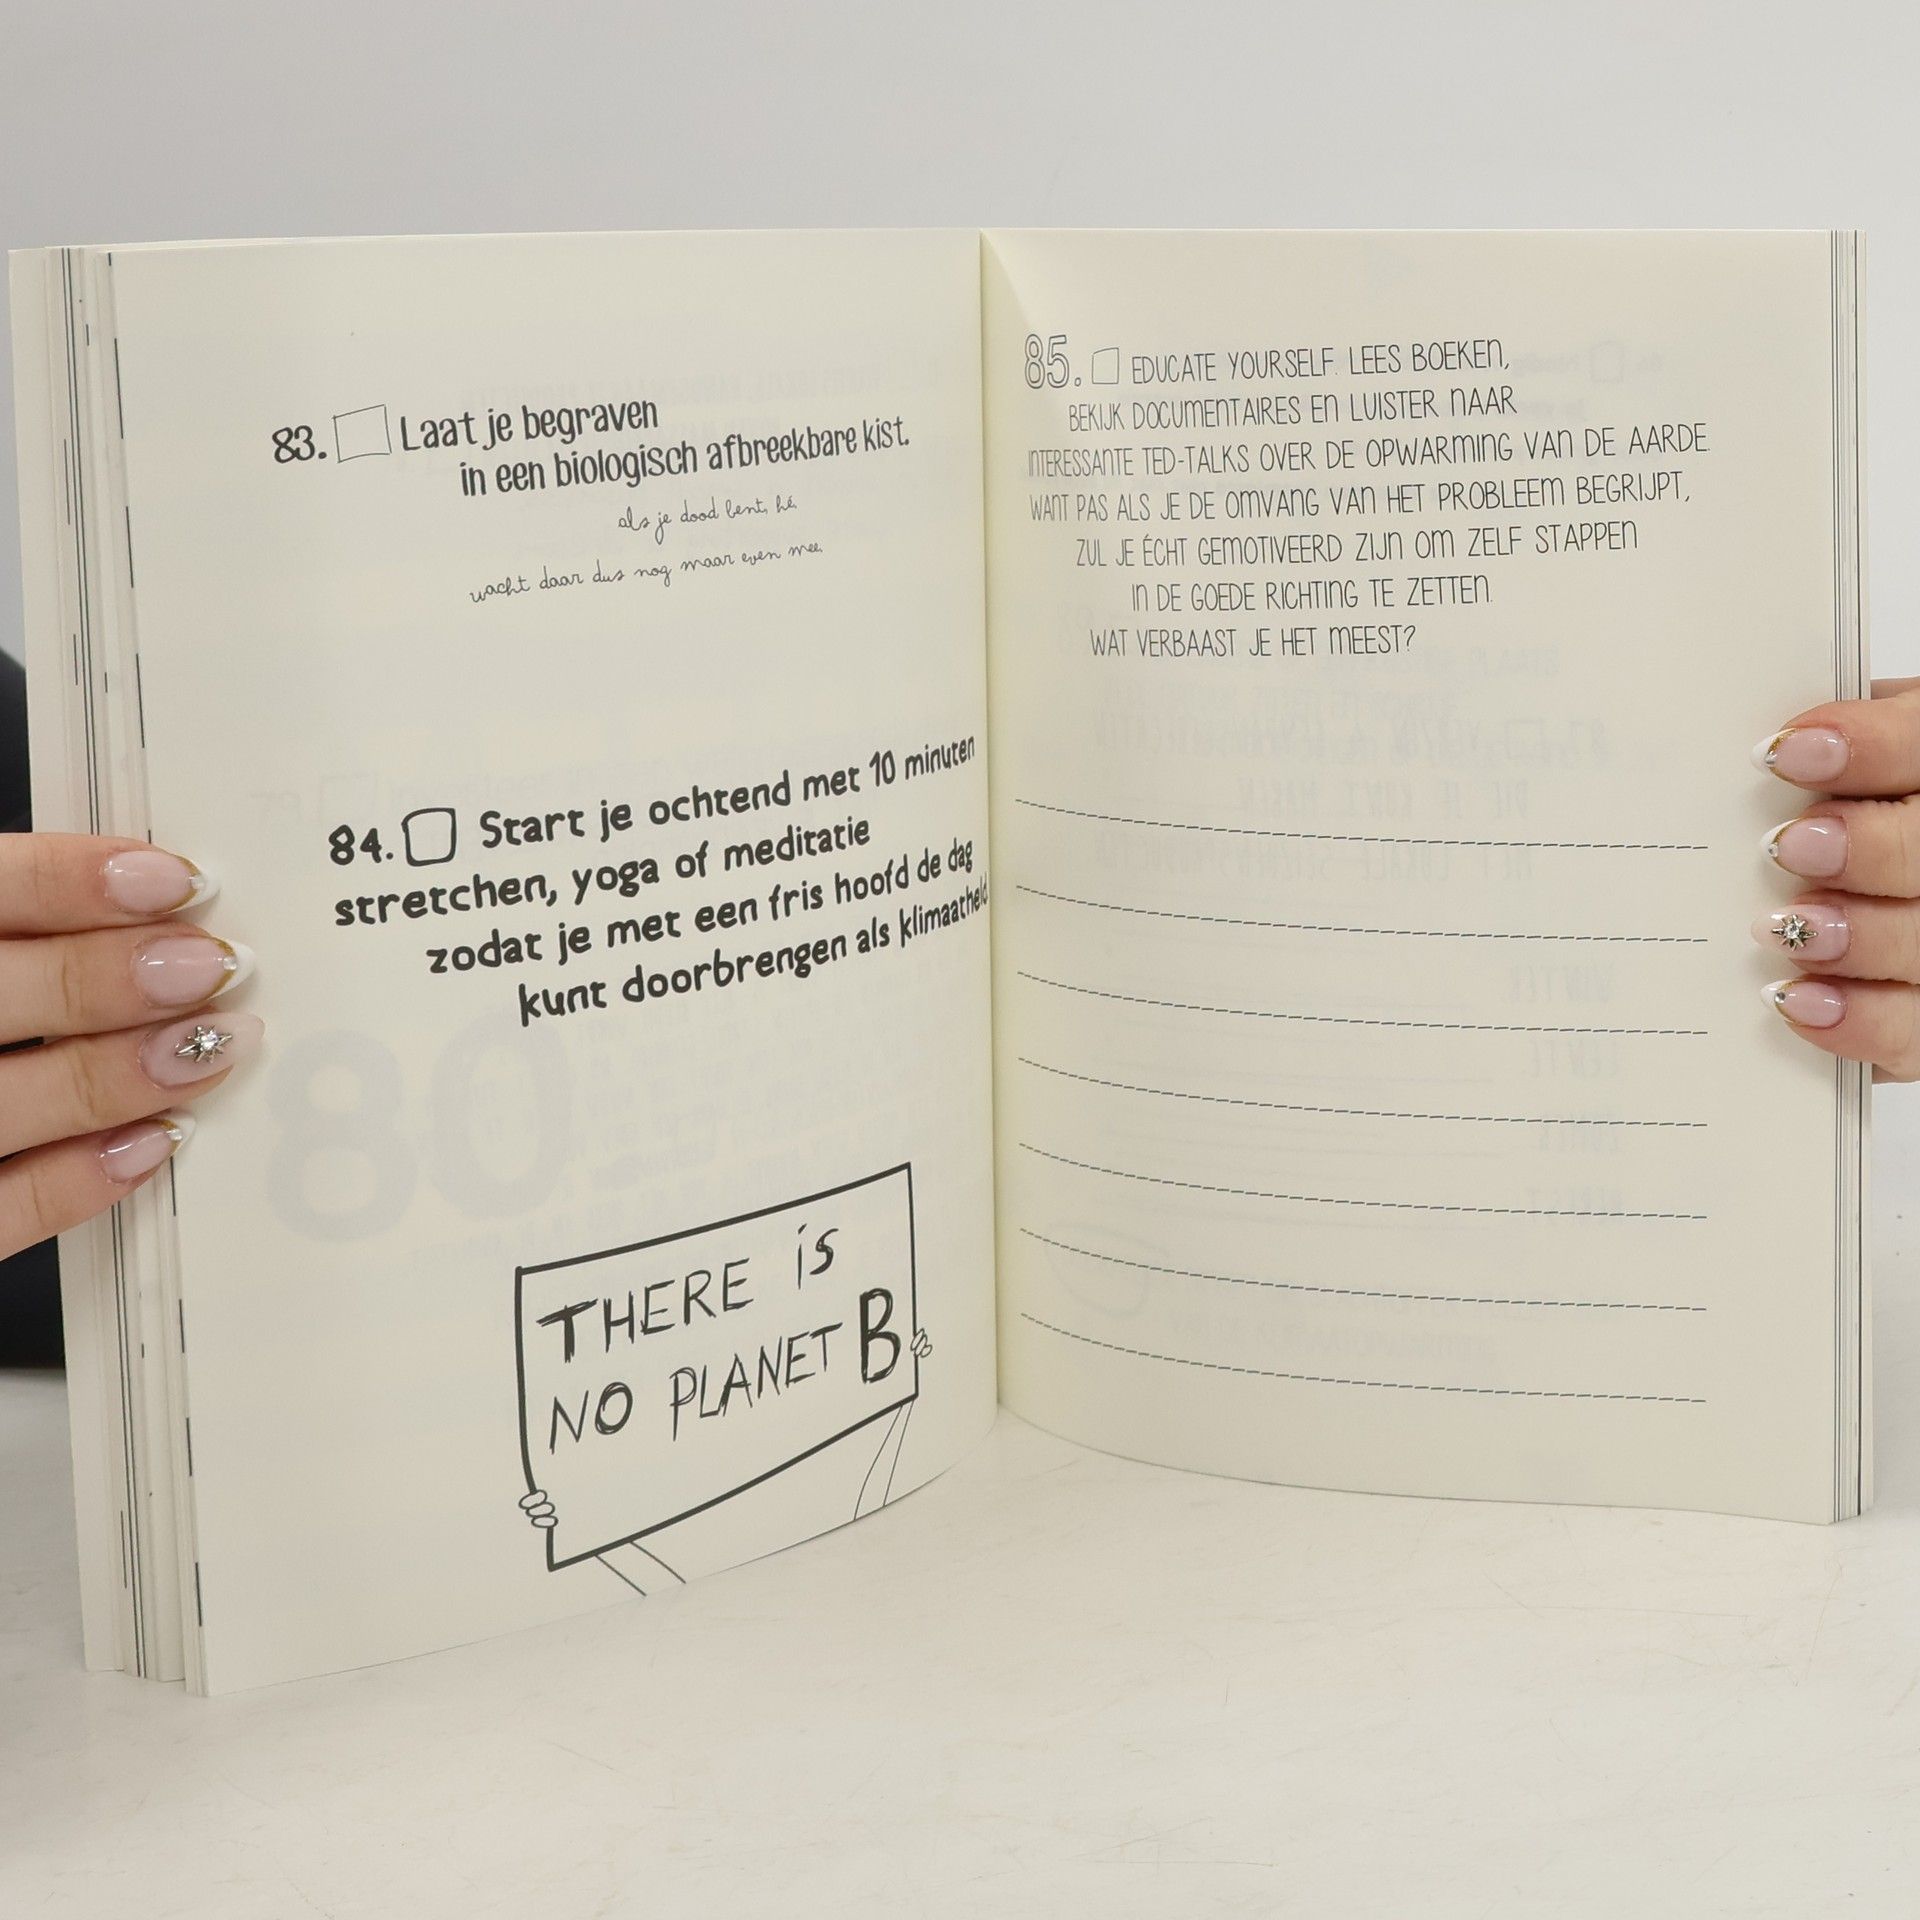 83. Laat je begraven
in een biologisch afbreekbare kist.
als je dood bent, hé,
wacht daar dus nog maar even mee.
84. Start je ochtend met 10 minuten
stretchen, yoga of meditatie
zodat je met een fris hoofd de dag
kunt doorbrengen als klimaatheld
THERE iS
NO PLANET B
85. EDUCATE YOURSELF. LEES BOEKEN,
BEKIJK DOCUMENTAIRES EN LUISTER NAAR
INTERESSANTE TED-TALKS OVER DE OPWARMING VAN DE AARDE.
WANT PAS ALS JE DE OMVANG VAN HET PROBLEEM BEGRIJPT,
ZUL JE ÉCHT GEMOTIVEERD ZIJN OM ZELF STAPPEN
IN DE GOEDE RICHTING TE ZETTEN.
WAT VERBAAST JE HET MEEST?